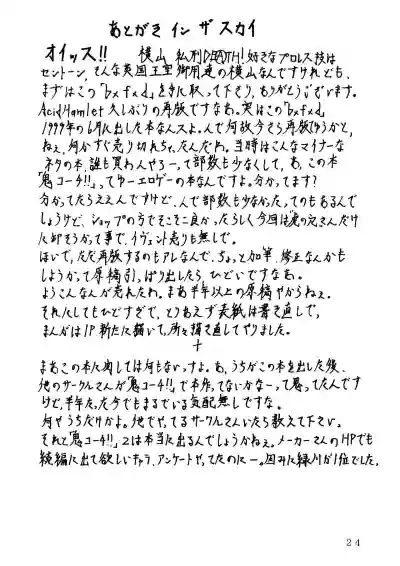 あとがき イン ザ スカイ
オイッス!! 横山 私刑DEATH! 好きなプロレス技は
セントーン、そんな英国王室御用達の横山なんですけれども、
まずはこの「bxfxd」を手に取って下さり、ありがとうございます。
AcidHamlet久しぶりの再版ですなぁ。実はこの「bxfxd」
1999年の6月に出した本なんスよ。んで何故今さら再版かゆうかと、
ねぇ、何かすぐ売り切れちゃったんだわ。当時はこんなマイナーな
ネタの本、誰も買わんやろーって部数も少なくして、あ、この本
「鬼コーチ!!」ってゆーエロゲーの本なんですよ。分かってます?
分かってたらええんですけど、んで部数も少なかったってのもあるんで
しょうけど、ショップの方でそこそこ良かったらしく今回は虎の穴さんだけ
に卸そうかって事で、イヴェント売りも無しで。
ほいで、ただ再版するのもアレなんで、ちょっと加筆、修正なんかも
しようかって原稿引っぱり出したら、ひどいですなぁ。
ようこんなんが売れたわ。まぁ半年以上の原稿やからねぇ。
それにしてもひどすぎて、とりあえず表紙は書き直して、
まんがは1P新たに描いて、所々描き直してやりました。
+
まぁこの本に関しては何もないっすよ。あ、うちがこの本を出した後、
他のサークルさんが「鬼コーチ!!」で本作ってないかなーって思ってたんです
けど、半年たった今でもまるでいる気配無しですな。
何やうちだけかよ。他でやってるサークルさんいたら教えて下さい。
それと「鬼コーチ!!」2は本当に出るんでしょうかねぇ。メーカーさんのHPでも
続編に出て欲しいキャラ、アンケートやってたのにー。因みに緑川が1位でした。
24